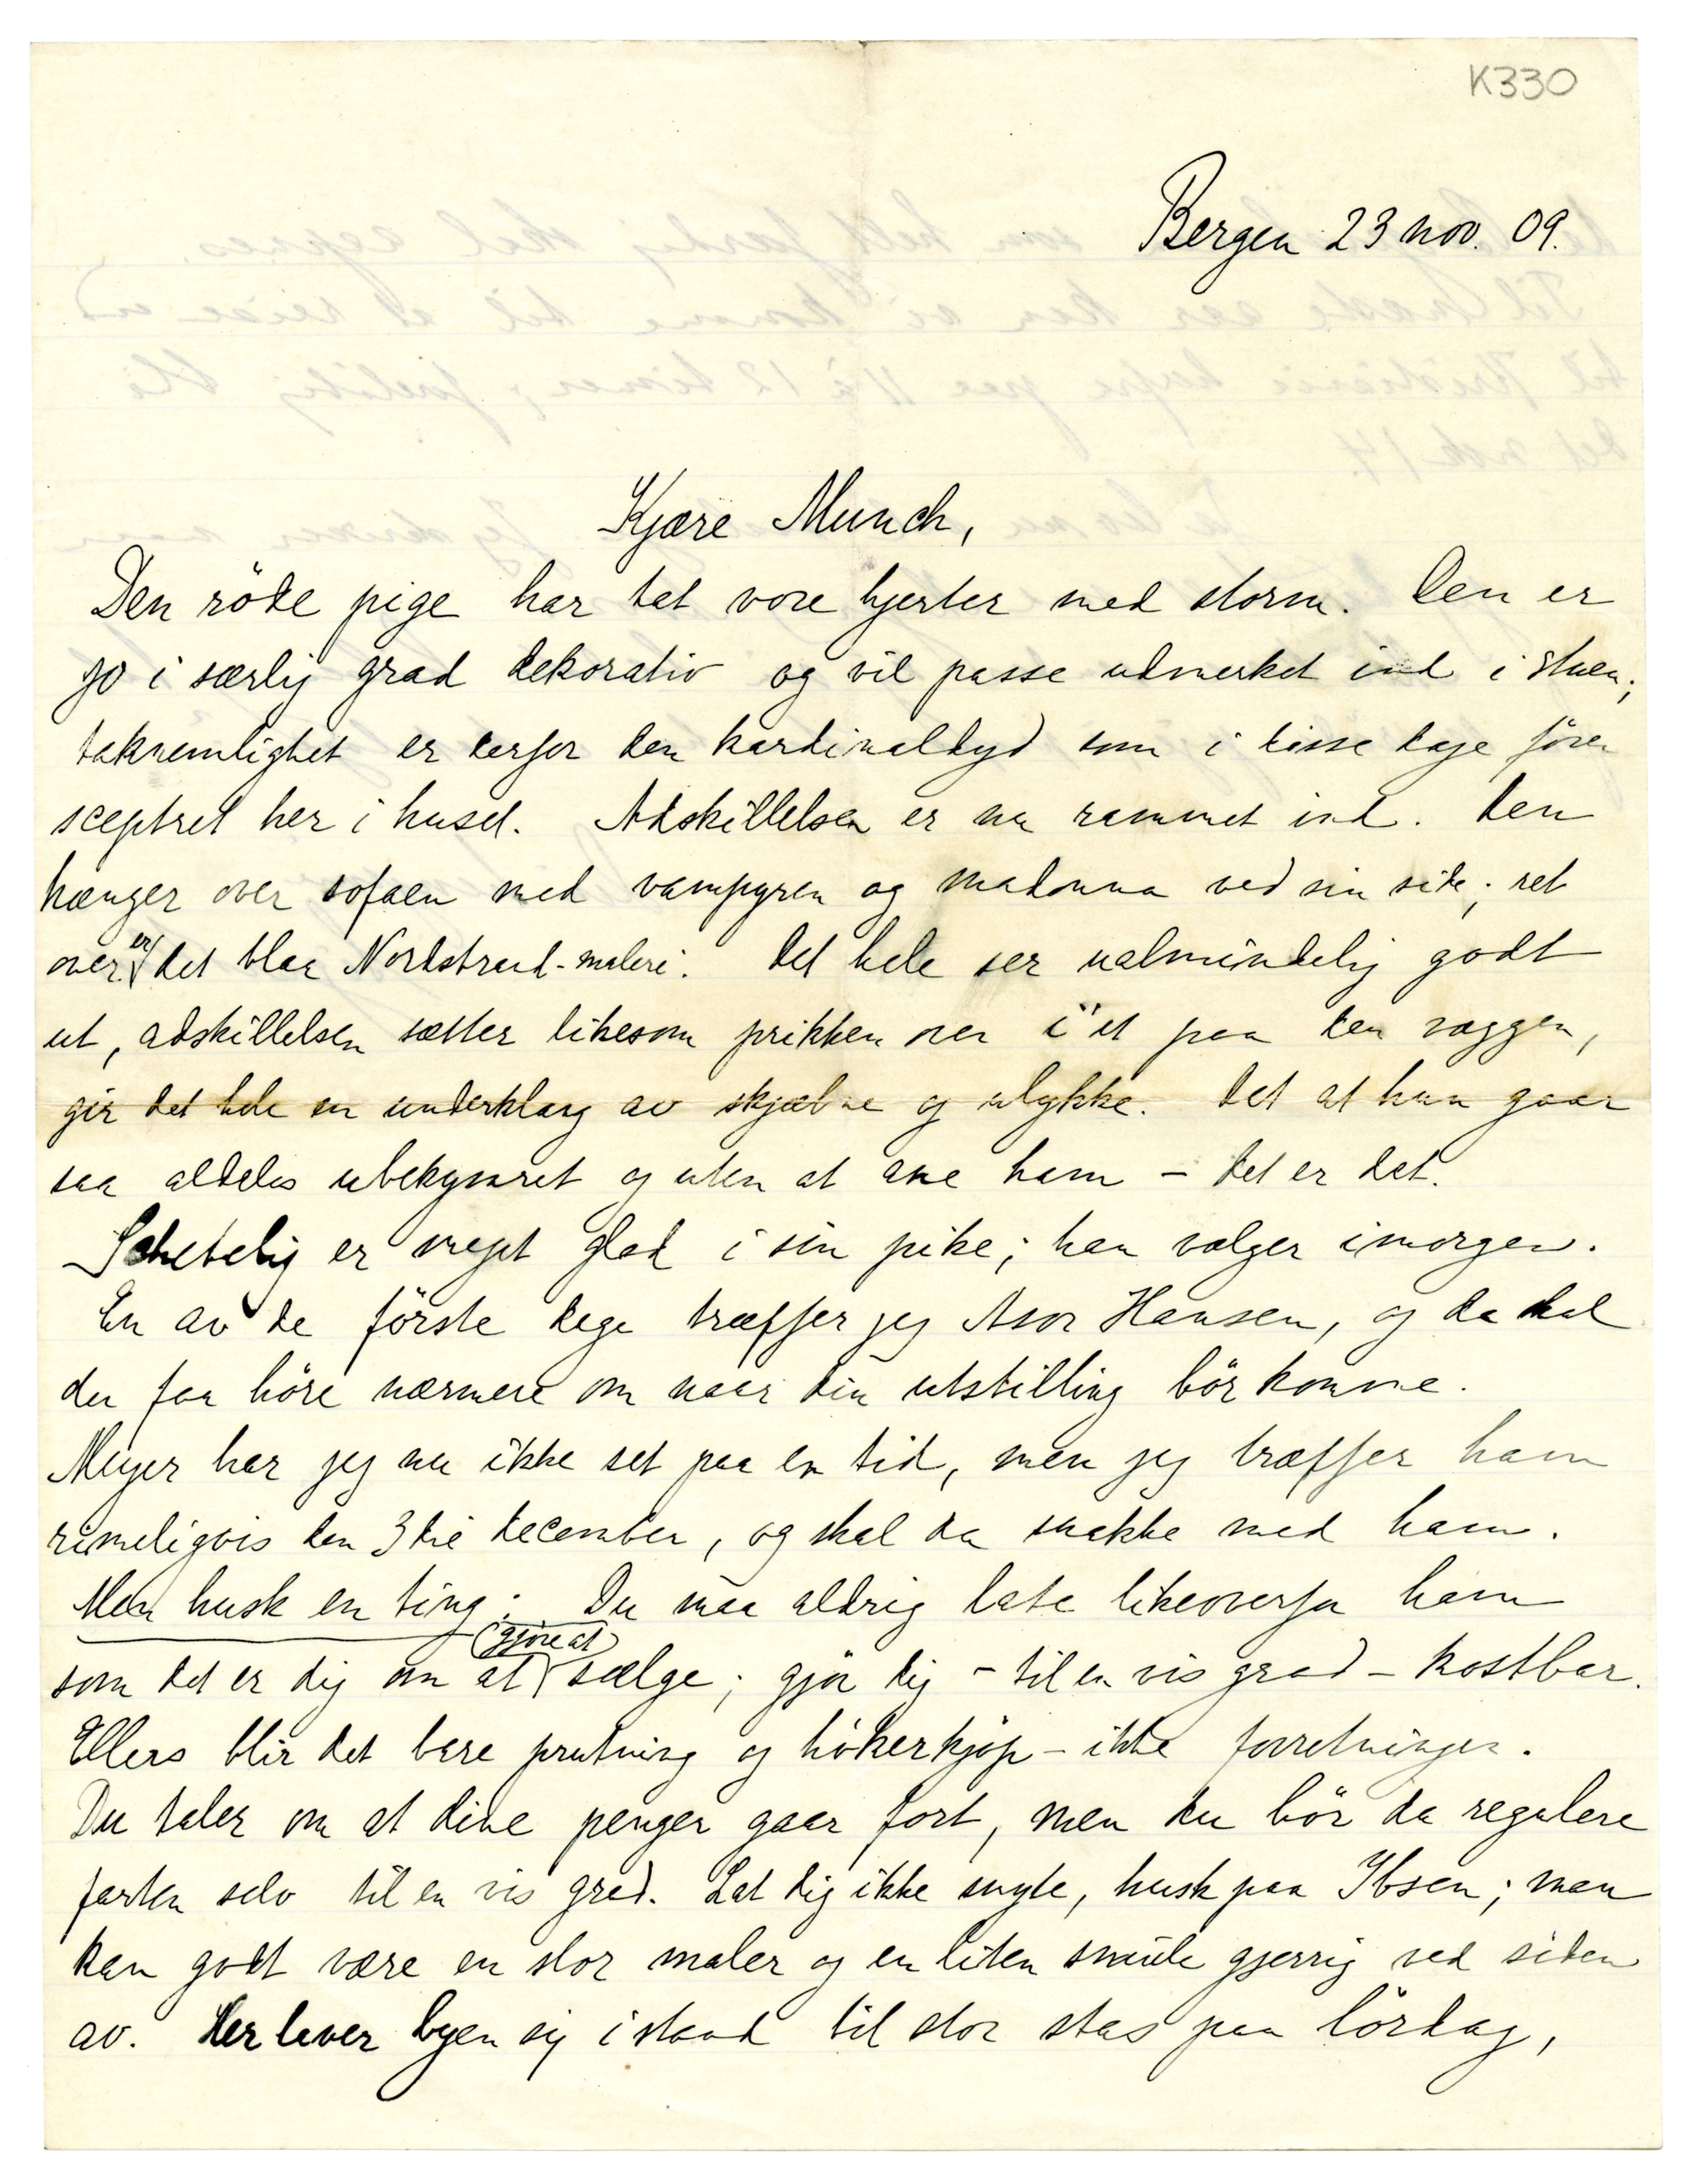 K330
Bergen 23 nov. 09.
Kjære Munch,
Den röde pige har tat vore hjerter med storm. Den er
jo i særlig grad dekorativ og vil passe udmerket ind i stuen;
taknemlighet er derfor den kardinaldyd som i disse dage förer
sceptret her i huset. Adskillelsen er nu rammet ind. Den
hænger over sofaen med vampyren og madonna ved sin side; ret
over er det blaa Nordstrand-maleri. Det hele ser ualmindelig godt
ut, adskillelsen sætter likesom prikken over i'et paa den væggen,
gir det hele en underklang av skjæbne og ulykke. Det at hun gaar
saa aldeles ubekymret og uten at ane ham – det er det.
Schetelig er meget glad i sin pike; han vælger imorgen.
En av de förste dage træffer jeg Asor Hansen, og da skal
du faa höre nærmere om naar din utstilling bör komme.
Meyer har jeg nu ikke set paa en tid, men jeg træffer ham
rimeligvis den 3die december, og skal da snakke med ham.
Men husk en ting: Du maa aldrig late likeoverfor ham
som det er dig om at (gjöre at) sælge; gjör dig – til en vis grad – kostbar.
Ellers blir det bare prutning og hökerkjöp – ikke forretninger.
Du taler om at dine penger gaar fort, men du bör da regulere
farten selv til en vis grad. Lat dig ikke snyte, husk paa Ibsen; man
kan godt være en stor maler og en liten smule gjerrig ved siden
av. Her laver byen sig istand til stor stas paa lördag,